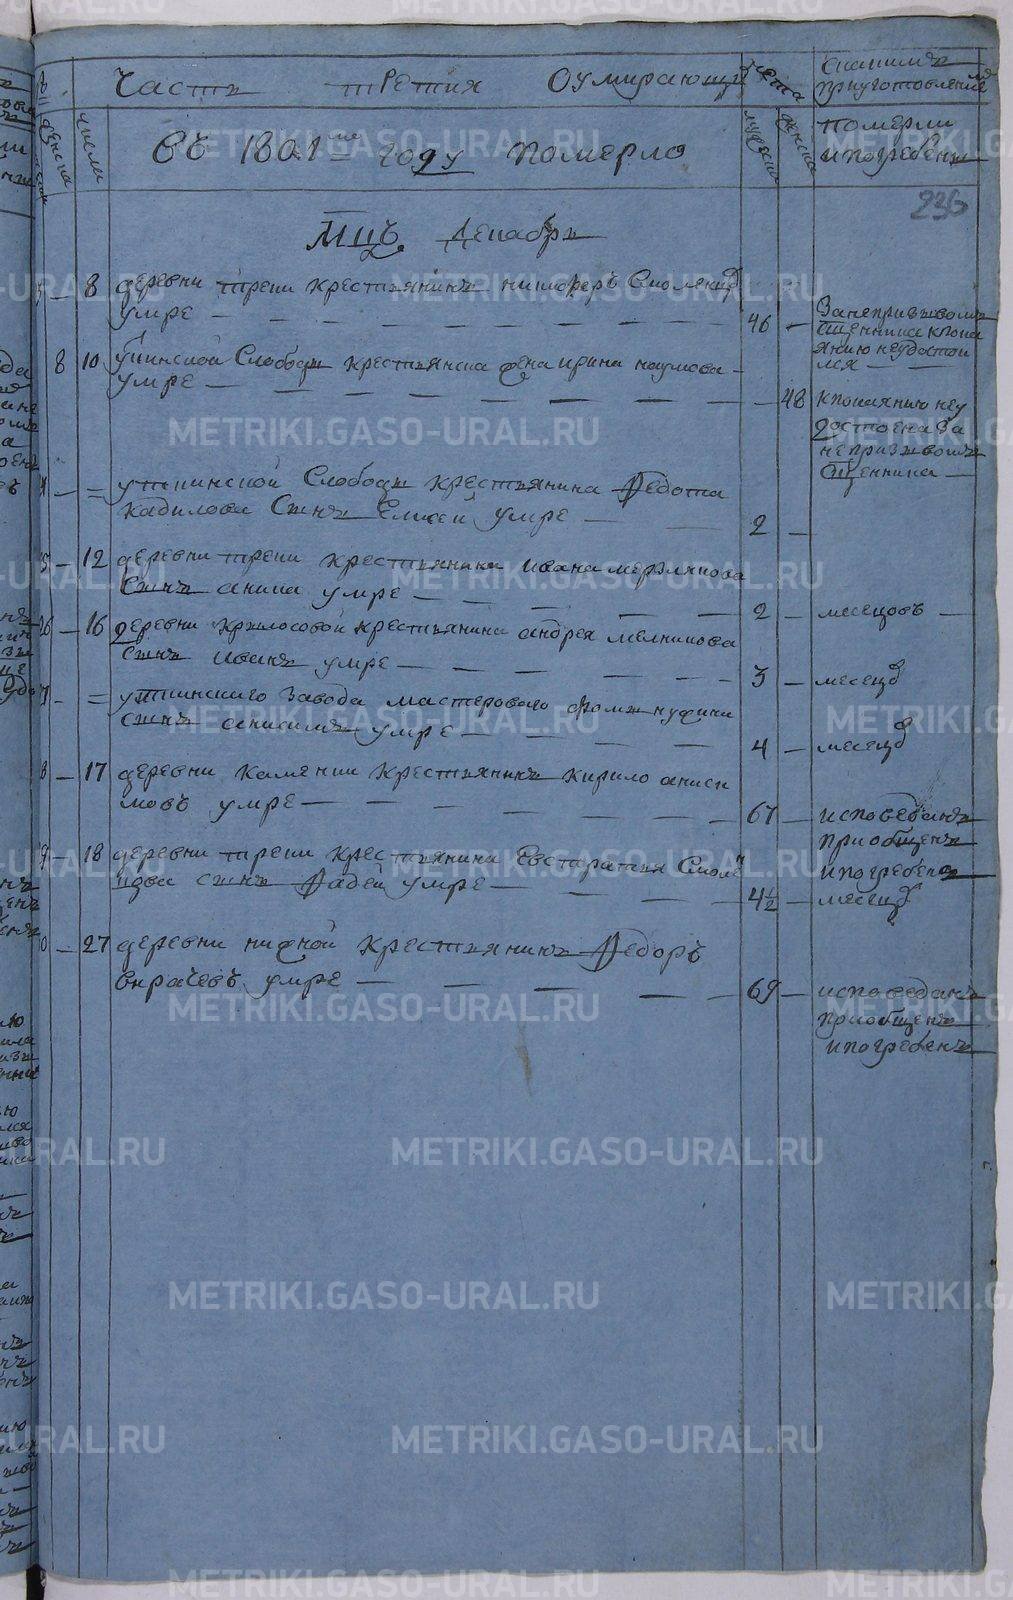 Часть третия О умирающи
лета
Скакимъ
приуготовление
женска
числа
Въ 1801мъ году померло
мужеска
женска
померли
и погребены
236
Мцъ Декабрь
8 деревни трени крестьянинъ никифоръ Смоленц
умре 46
Занепризывомъ
Сщенника кпока
янию неудостои
лся
8 10 Уткинской Слободы крестьянска жена ирина наумова
умре 48
кпокаянию неу
достоена За
непризывомъ
Сщенника
= уткинской Слободы крестьянина Федота
кадилова Сынъ Елисей умре 2
12 деревни трени крестьянина ивана мерзлякова
Сынъ умре 2 месецовъ
16 деревни крылосовой крестьянина андрея мелникова
Сынъ иванъ умре 3 месец
= уткинскаго завода мастероваго фомы
Сынъ анисимъ умре 4 месец
17 деревни каменки крестьянинъ кирило аниси
мовъ умре 67
исповеданъ
приобщенъ
и погребенъ
18 деревни трени крестьянина Евстратия Смоле
нцова сынъ Фадей умре 4½ месец
27 деревни нижной крестьянинъ Федоръ
умре 69
исповеданъ
приобщенъ
и погребенъ
METRIKI.GASO-URAL.RU